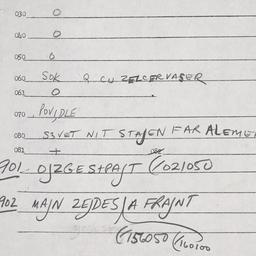 030 O
040 O
050 O
060 SOK Q CU ZELCERVASER
061 O
070 POVJDLE
080 SJVET NIT STAJEN FAR ALEME
081 +
901 OJZGESTPAJT (/021050
902 MAJN ZEJDES /A FRAJNT
(/156050 (/160100